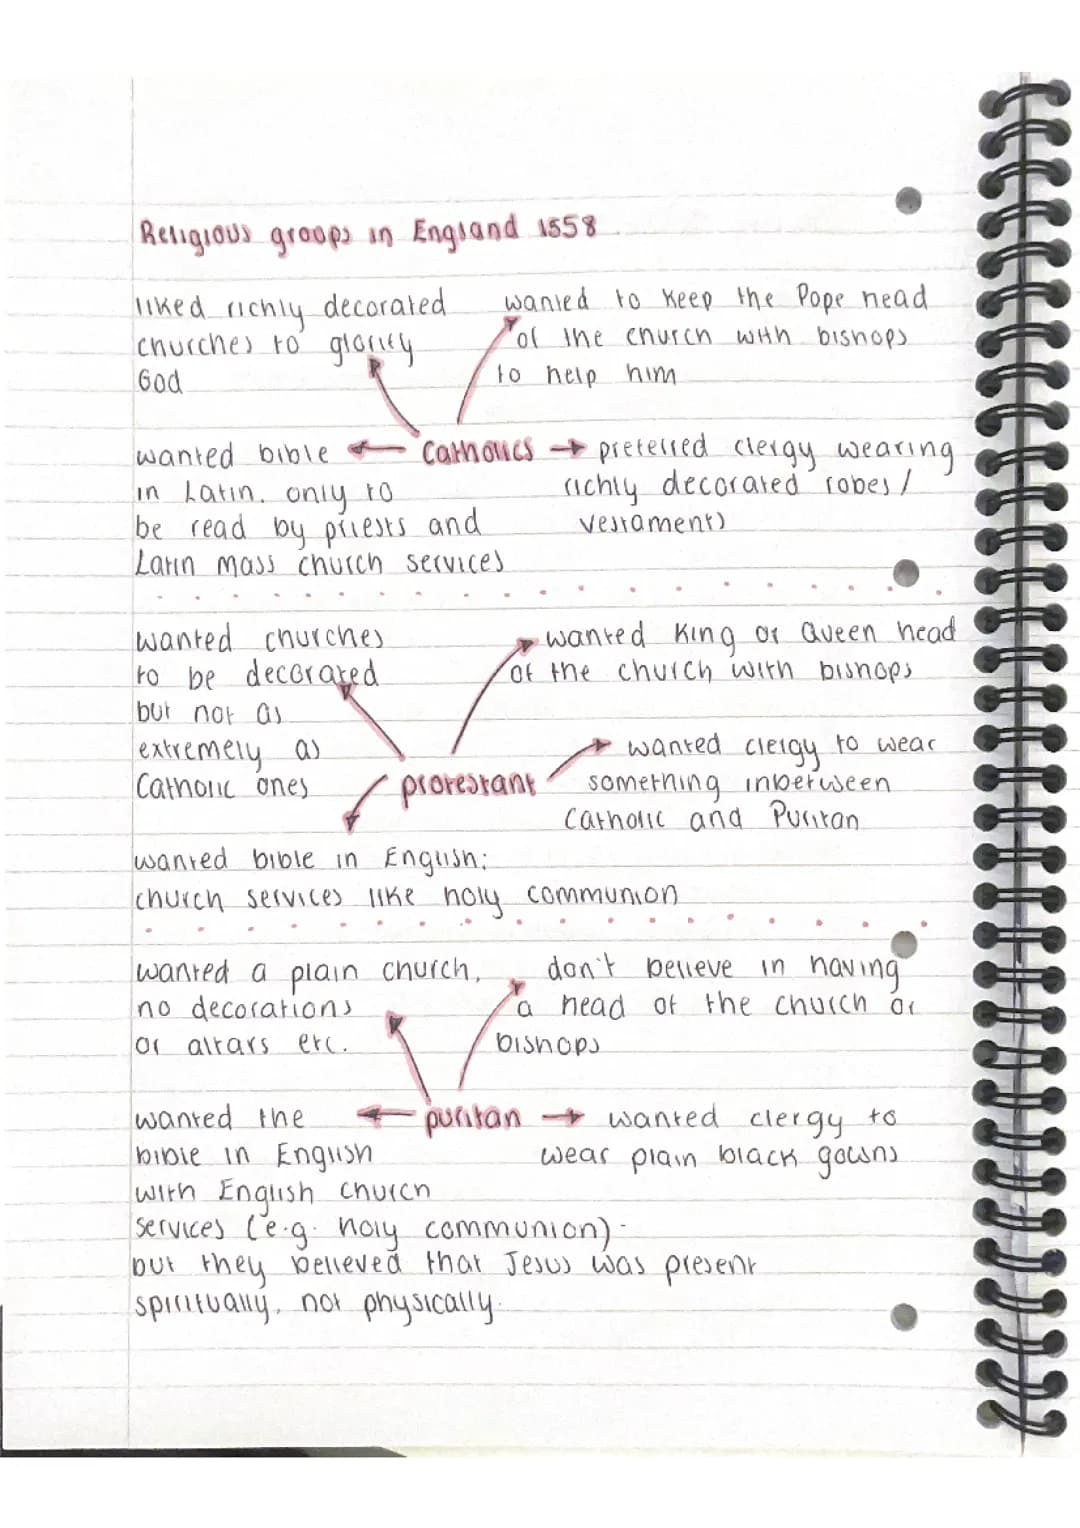 Religious groups in England 1558
liked richly decorated
churches to glorify
God
wanted to keep the Pope head
of the church with bishops
to help him
Catholics
wanted bible
in Latin. only to
be read by priests and
Latin mass church services
preferred clergy wearing
richly decorated robes /
vestaments
wanted churches
to be decorated
but not as
extremely as
Catholic ones
wanted King or Queen head
of the church with bishops
protestant
wanted clergy to wear
something inbetween
Catholic and Puritan
wanted bible in English;
church services like holy communion
wanted a plain church,
no decorations
or altars etc.
don't believe in having
a head of the church or
bishops
puritan
wanted the
bible in English
with English church
services (e.g. holy communion)
but they believed that Jesus was present
spiritually, not physically.
wanted clergy to
wear plain black gowns